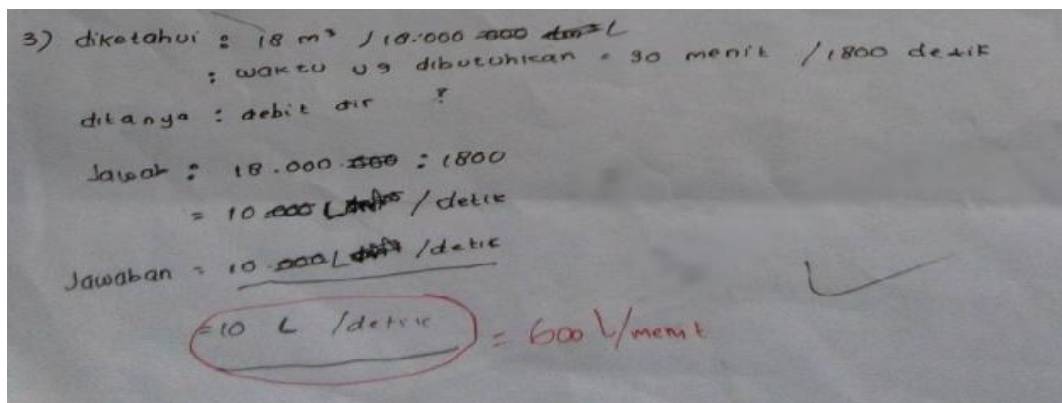 3) diketahui : 18 m³ / 18.000 L
: waktu yg dibutuhkan = 30 menit / 1800 detik
ditanya : debit air ?
Jawab : 18.000 : 1800
= 10 L / detik
Jawaban = 10 L / detik
= 10 L / detik = 600 L/menit